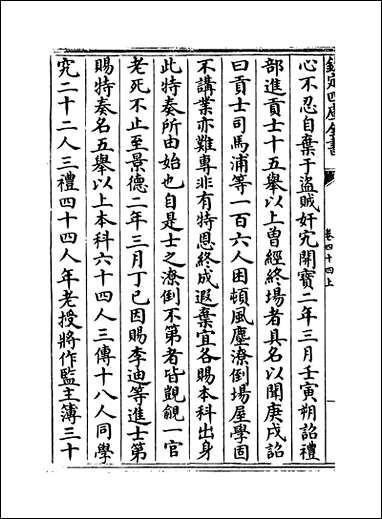 欽定四庫全書
卷四十四上
心不忍自棄于盜賊奸宄開寶二年三月壬寅朔詔禮
部進貢士十五舉以上曾經終場者具名以聞庚戌詔
曰貢士司馬浦等一百六人困頓風塵潦倒場屋學固
不講業亦難專非有特恩終成遐棄宜各賜本科出身
此特奏所由始也自是士之潦倒不第者皆覬覦一官
老死不止至景德二年三月丁巳因賜李迪等進士第
賜特奏名五舉以上本科六十四人三傳十八人同學
究二十二人三禮四十四人年老授將作監主簿三十